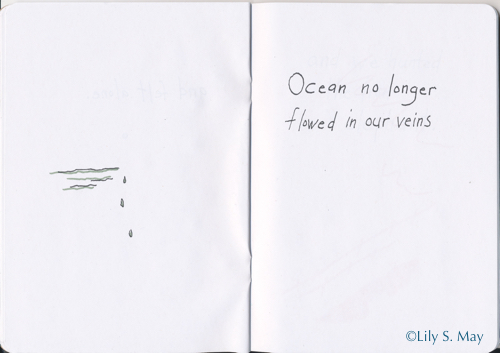 Ocean no longer
flowed in our veins
©Lily S. May